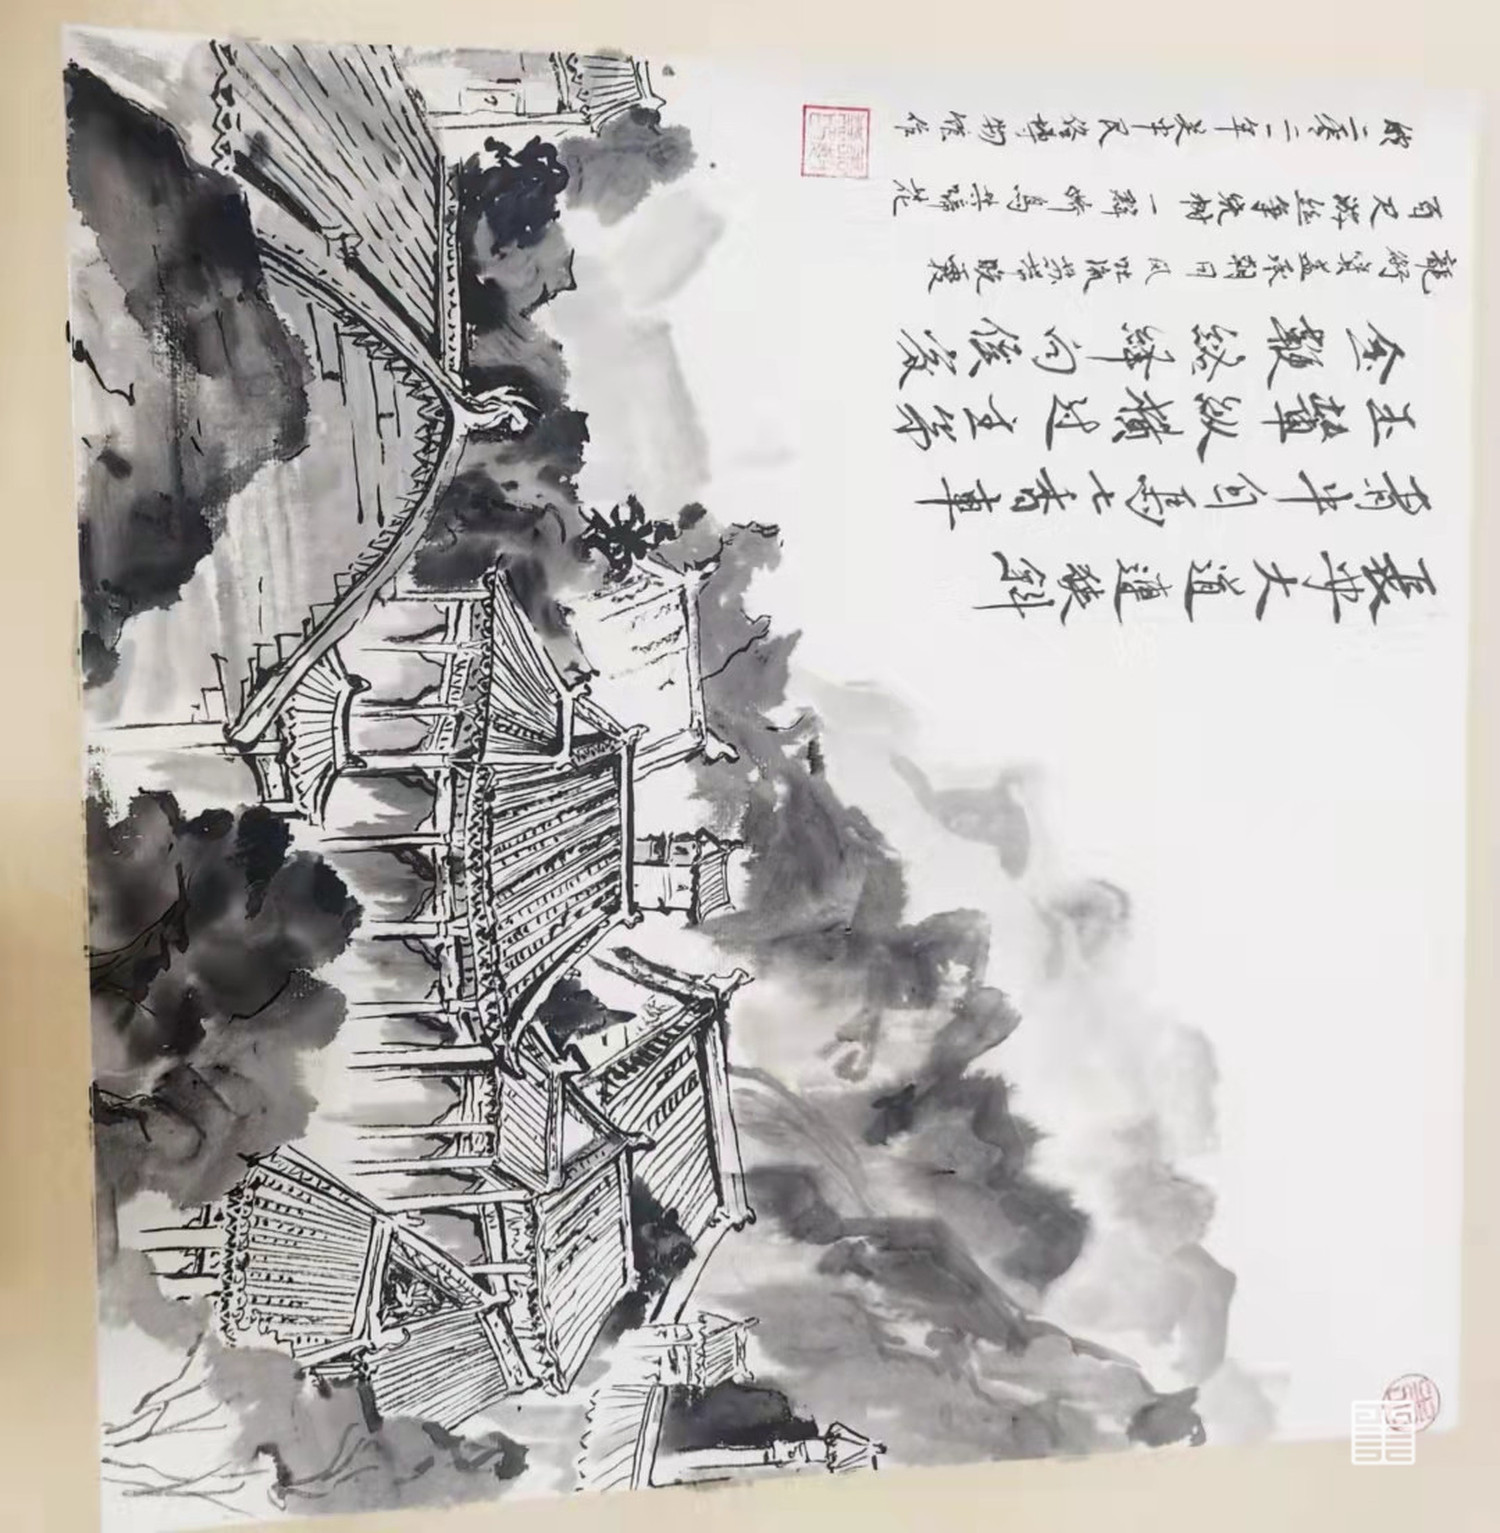 長安大道連狹斜
青牛白馬七香車
玉輦縱橫过主第
金鞭絡繹向侯家
龍銜寶盖承朝日 凤吐流蘇帶晚霞
百尺游絲争繞樹 一群嬌鳥共啼花
於二零二一年关中民俗博物馆作